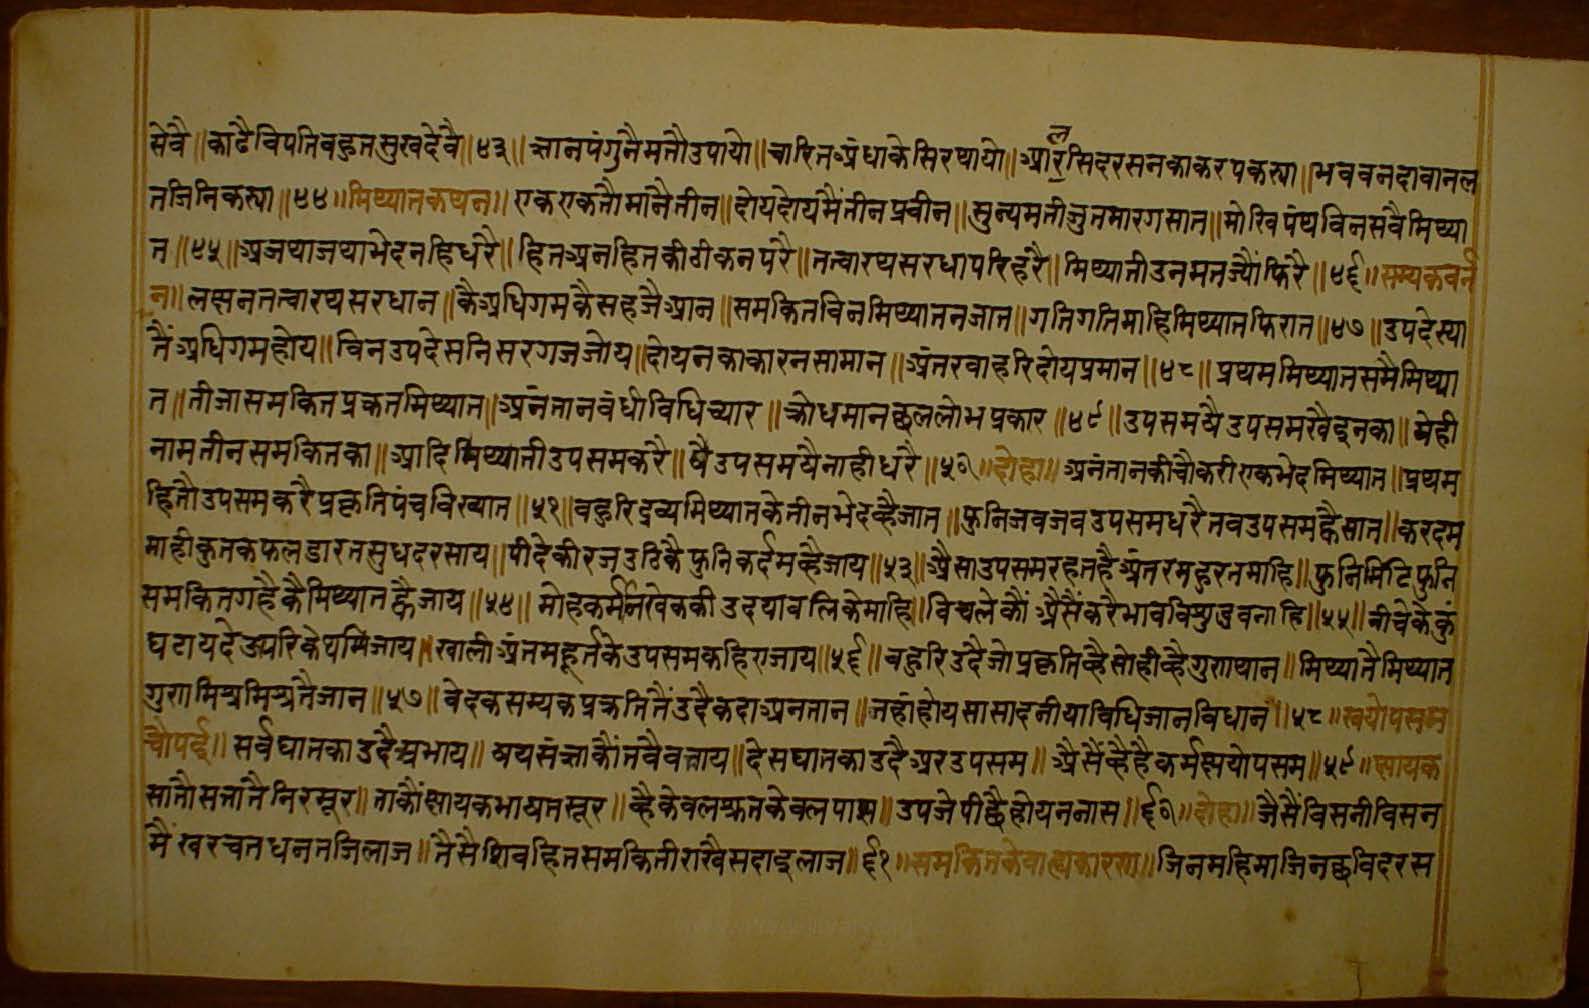 सेवै॥काढै विपतिबहुतसुखदेवै॥४३॥ज्ञानपंगुनैमतौउपायो॥चारितअंधाकेसिरथायो॥आरसिदरसनकाकरपकस्या॥भववनदावानल
तजिनिकस्या॥४४॥मिथ्यातकथन॥एकएकतौमांनैतीन॥दोयदोयमैंतीनप्रवीन॥सुन्यमतीजुतमारगसात॥मोखिपंथविनसवैमिथ्या
त॥४५॥अजथाजथाभेदनहिधरै॥हितअनहितकीठीकनपरै॥तत्वारथसरधापरिहरै॥मिथ्यातीउनमतज्यौंफिरै॥४६॥सम्यकवर्न
न॥लक्षनतत्वारथसरधान॥कैअधिगमकैसहजैआन॥समकितविनमिथ्यातनजात॥गतिगतिमाहिमिथ्यातफिरात॥४७॥उपदेस्या
तैंअधिगमहोय॥विनउपदेसनिसरगजजोय॥दोयनकाकारनसामान॥अंतरवाहरिदोयप्रमान॥४८॥प्रथममिथ्यातसमैमिथ्या
त॥तीजासमकितप्रकतमिथ्यात॥अनंतानवंधीविधिच्यार॥क्रोधमानछललोभप्रकार॥४९॥उपसमयैउपसमखैइनका॥येही
नामतीनसमकितका॥आदिमिथ्यातीउपसमकरै॥षैउपसमयैनाहीधरै॥५०॥दोहा॥अनंतानकीचौकरीएकभेदमिथ्यात॥प्रथम
हितौउपसमकरैप्रकृतिपंचविख्यात॥५१॥वहुरिद्रव्यमिथ्यातकेतीनभेदव्हैजात॥फुनिजवजवउपसमधरैतवउपसमह्वैसात॥करदम
माहीकुतकफलडारतसुधदरसाय॥पीदेकीरजउठिकैफुनिकर्दमव्हैजाय॥५३॥अैसाउपसमरहतहैअंतरमहुरतमाहि॥फुनिमिटिफुनि
समकितगहैकैमिथ्यातह्वैजाय॥५४॥मोहकर्मनखेककीउदयावलिकेमाहि॥विचलेकौंअैसैंकरैभावविशुद्धवनाहि॥५५॥नीचेकेकुं
घटायदेउपरिकेथमिजाय॥खालीअंतमहूर्तकेउपसमकहिएजाय॥५६॥बहुरिउदैजोप्रकृतिव्हैसोहीव्हैगुणथान॥मिथ्यातैमिथ्यात
गुणमिश्रमिश्रतैजान॥५७॥वेदकसम्यकप्रकृतितैंउदैकदाअनतान॥जहांहोयसासादनीयाविधिजानविधान॥५८॥खयोपसम
चौपई॥सर्वघातकाउदैअभाय॥षयसंज्ञाकौंतवैवताय॥देसघातकाउदैअरउपसम॥अैसैंव्हैहैकर्मक्षयोपसम॥५९॥क्षायक
सांतौसत्तातैनिरमूर॥ताकौंक्षायकभाषतसूर॥व्हैकेवलश्रुतकेवलपास॥उपजेपीछैहोयननास॥६०॥दोहा॥जैसैंविसनीविसन
मैंखरचतधनतजिलाज॥तैसैशिवहितसमकितीराखैसदाइलाज॥६१॥समकितकेवाह्यकारण॥जिनमहिमाजिनछविदरस